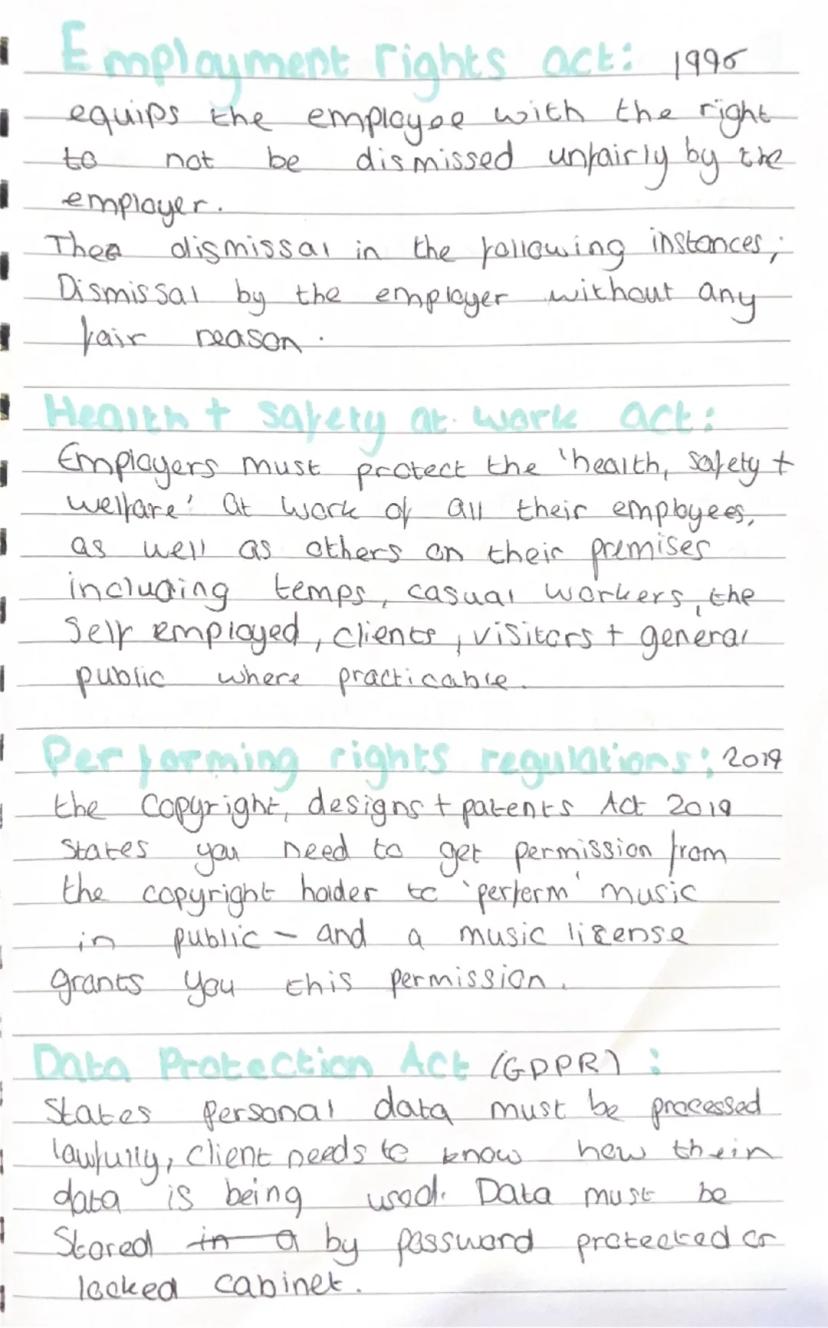 Employment rights act: 1996
equips the employee with the right
to not be dismissed unfairly by the
employer.
The dismissal in the following instances;
Dismissal by the employer without any
fair reason.
Health + safety at work act:
Employers must protect the 'health, safety +
welfare' at work of all their employees,
as well as others on their premises
including temps, casual workers, the
Self employed, clients, visitors + general
public where practicable.
Performing rights regulations: 2019
the Copyright, designs + patents Act 2019
states you need to get permission from
the copyright holder to 'perform' music
in public - and a music license
grants you this permission.
Data Protection Act (GDPR):
States personal data must be processed
lawfully, client needs to know how their
data is being used. Data must be
Stored in a by password protected or
locked cabinet.